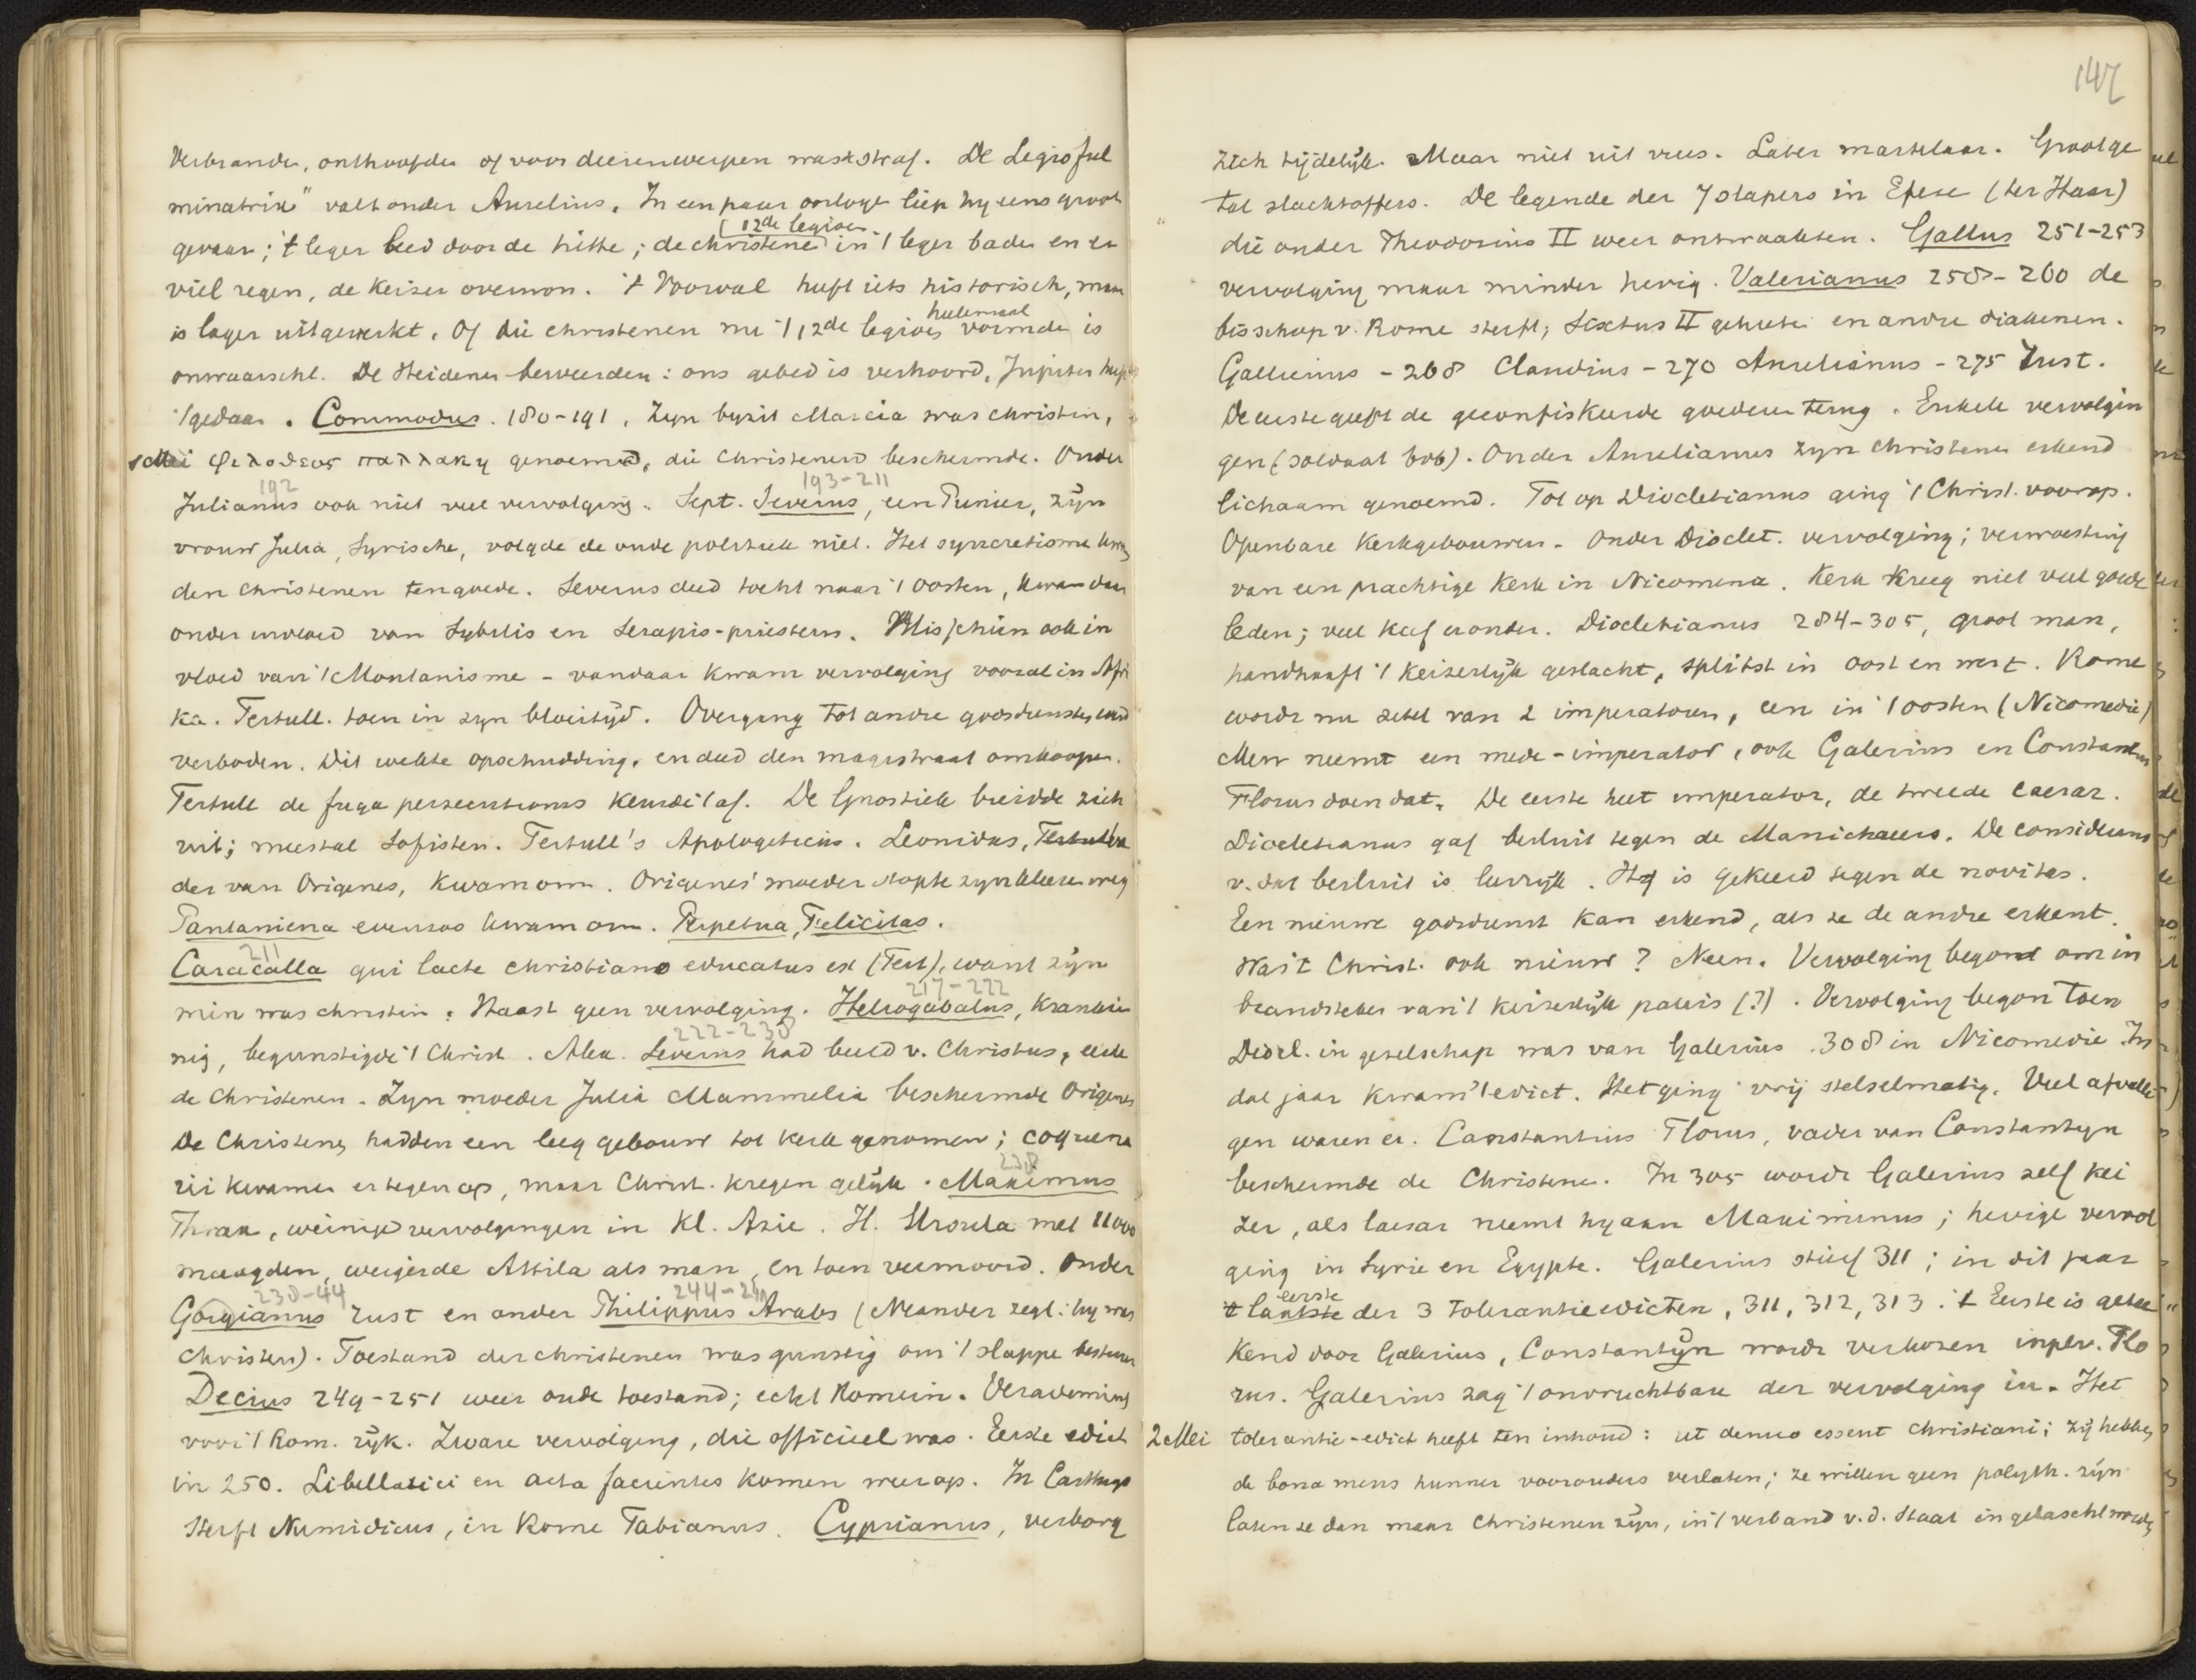 Verbranden, onthoofden of voor dieren werpen was straf. De Legio ful
minatrix" valt onder Aurelius. In een paar oorlogen liep hy eens groot
(12de legioen
gevaar; 't leger leed door de hitte; de christenen in 't leger baden en er
viel regen, de Keizer overwon. 't Voorval heeft iets historisch, maar
helemaal
is later uitgewerkt. Of die christenen nu 't 12de legioen vormden is
onwaarschl. De Heidenen beweerden: ons gebed is verhoord, Jupiter heeft
't gedaan. Commodus. 180-191. Zyn byzit Marcia was christin,
1 Mei φιλοθεος παλλακη genoemd, die Christenen beschermde. Onder
192 193-211
Julianus ook niet veel vervolging. Sept. Severus, een Punier, zyn
vrouw Julia, Syrische, volgde de oude politiek niet. Het syncretisme kwam
den christenen ten goede. Severus deed tocht naar 't oosten, kwam daar
onder invloed van Sybilis en Serapis-priesters. Misschien ook in
vloed van 't Montanisme - vandaar kwam vervolging vooral in Afri
ka. Tertull. toen in zyn bloeityd. Overgang tot andre godsdiensten werd
verboden. Dit wekte opschudding, en deed den magistraat omkoopen.
Tertull de fuga persecutionis keurde 't af. De Gnostiek breidde zich
uit; meestal Sofisten. Tertull's Apologeticus. Leonidas, va
der van Origenes, kwam om. Origenes' moeder stopte zyn kleeren weg
Pantaniena evenzoo kwam om. Perpetua, Felicitas.
211
Caracalla qui lacte christiano educatus est (Tert), want zyn
217-222
min was christin. Naast geen vervolging. Heliogabalus, krankzin
222-238
nig, begunstigde 't Christ. Alex. Severus had beeld v. Christus, eerde
de Christenen. Zyn moeder Julia Mammelia beschermde Origenes
De Christenen hadden een leeg gebouw tot kerk genomen; coquina
238
rii kwamen er tegen op, maar Christ. kregen gelyk. Maximus
Thrax, weinige vervolgingen in Kl. Azie. H. Ursula met 11000
maagden, weigerde Attila als man, en toen vermoord. Onder
238-44 244-249
Gorgianus rust en onder Philippus Arabs (Neander zegt: hy was
christen). Toestand der christenen was gunstig om 't slappe bestuur
Decius 249-251 weer oude toestand; echt Romein. Verademing
voor 't Rom. ryk. Zware vervolging, die officieel was. Eerste edict
in 250. Libellatici en acta facientes komen weer op. In Carthago
sterft Numidicus, in Rome Fabianus. Cyprianus, verborg
147
zich tijdelijk. Maar niet uit vrees. Later martelaar. Groot ge
tal slachtoffers. De legende der 7 slapers in Efese (ter Haar)
die onder Theodosius II weer ontwaakten. Gallus 251-253
vervolging maar minder hevig. Valerianus 258-260 de
bisschop v. Rome sterft; Sixtus II geheeten en andre diakenen.
Gallienus - 268 Claudius - 270 Aurelianus - 275 Rust.
De eerste geeft de geconfiskeerde goederen terug. Enkele vervolgin
gen (soldaat bvb). Onder Aurelianus zyn christenen erkend
lichaam genoemd. Tot op Diocletianus ging 't Christ. voorop.
Openbare Kerkgebouwen. Onder Dioclet. vervolging; verwoesting
van een prachtige Kerk in Nicomena. Kerk kreeg niet veel goede
leden; veel kaf eronder. Diocletianus 284-305, groot man,
handhaaft 't Keizerlyk geslacht, splitst in oost en west. Rome
wordt nu zetel van 2 imperatoren, een in 't oosten (Nicomedie)
Men neemt een mede-imperator, ook Galerius en Constantius
Florus doen dat. De eerste heet imperator, de tweede caesar.
Diocletianus gaf besluit tegen de Manichaeers. De considerans
v. dat besluit is leerryk. Hy is gekeerd tegen de novitas.
Een nieuwe godsdienst kan erkend, als ze de andre erkent.
Was 't Christ. ook nieuw? Neen. Vervolging begon om in
brandsteken van 't keizerlyk paleis (?). Vervolging begon toen
Diocl. in gezelschap was van Galerius. 308 in Nicomedie. In
dat jaar kwam 't edict. Het ging vrij stelselmatig. Veel afvalli
gen waren er. Constantius Florus, vader van Constantyn
beschermde de Christenen. In 305 wordt Galerius zelf kei
zer, als caesar neemt hy aan Maximinus; hevige vervol
ging in Syrie en Egypte. Galerius stierf 311; in dit jaar
eerste
't laatste der 3 tolerantieedicten, 311, 312, 313. 't Eerste is getee
kend door Galerius, Constantyn wordt verkozen in pl. v. Flo
rus. Galerius zag 't onvruchtbare der vervolging in. Het
2 Mei tolerantie-edict heeft ten inhoud: ut denuo essent christiani; zij hebben
de bona mens hunner voorouders verlaten; ze willen geen polyth. zijn
laten ze dan maar Christenen zijn, in 't verband v.d. Staat ingelascht worden